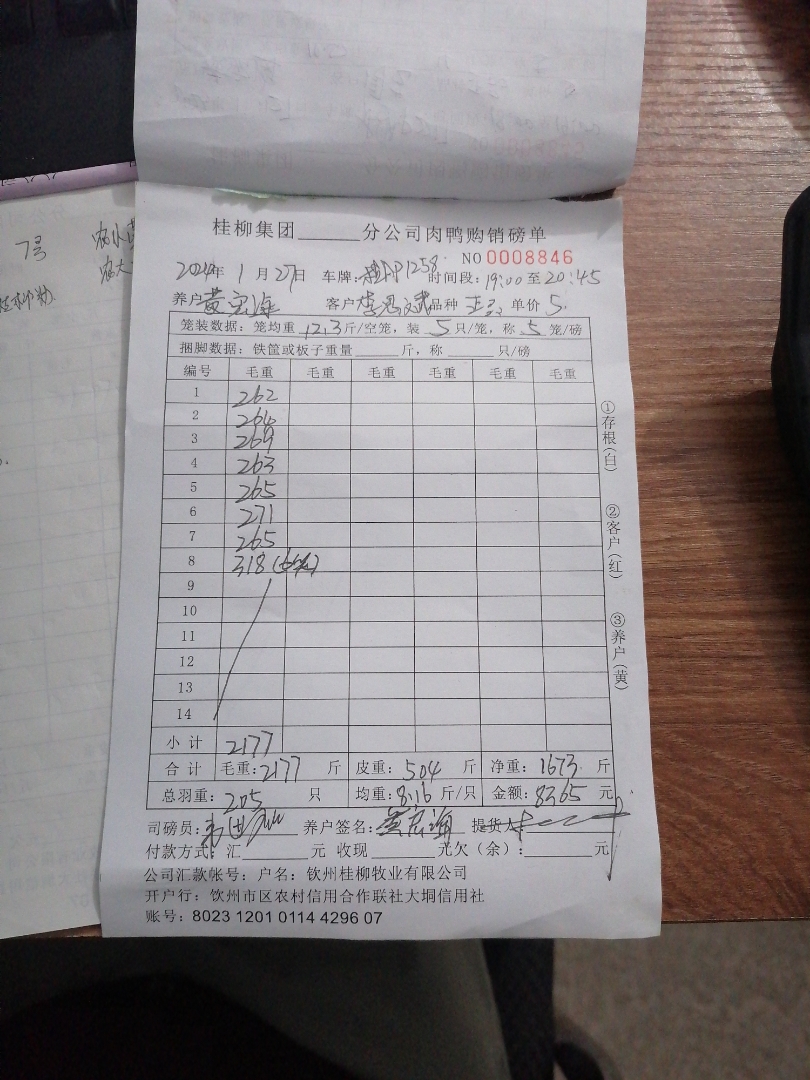 7号
桂柳集团______分公司肉鸭购销磅单
NO 0008846
2024年 1 月 27日 车牌: P1258 时间段: 19:00 至 20:45
养户 黄宏海 客户 李 品种 单价 5.
笼装数据: 笼均重 12.3 斤/空笼, 装 5 只/笼, 称 5 笼/磅
捆脚数据: 铁筐或板子重量______斤, 称______只/磅
编号 毛重 毛重 毛重 毛重 毛重 毛重
1 262
2 264
3 269
4 263
5 265
6 271
7 265
8 318
9
10
11
12
13
14
小计 2177
合计 毛重: 2177 斤 皮重: 504 斤 净重: 1673 斤
总羽重: 205 只 均重: 8.16 斤/只 金额: 8365 元
司磅员: 养户签名: 黄宏海 提货人:
付款方式: 汇______元 收现______元欠(余): ______元
公司汇款帐号: 户名: 钦州桂柳牧业有限公司
开户行: 钦州市区农村信用合作联社大垌信用社
账号: 8023 1201 0114 4296 07
①存根(白)
②客户(红)
③养户(黄)